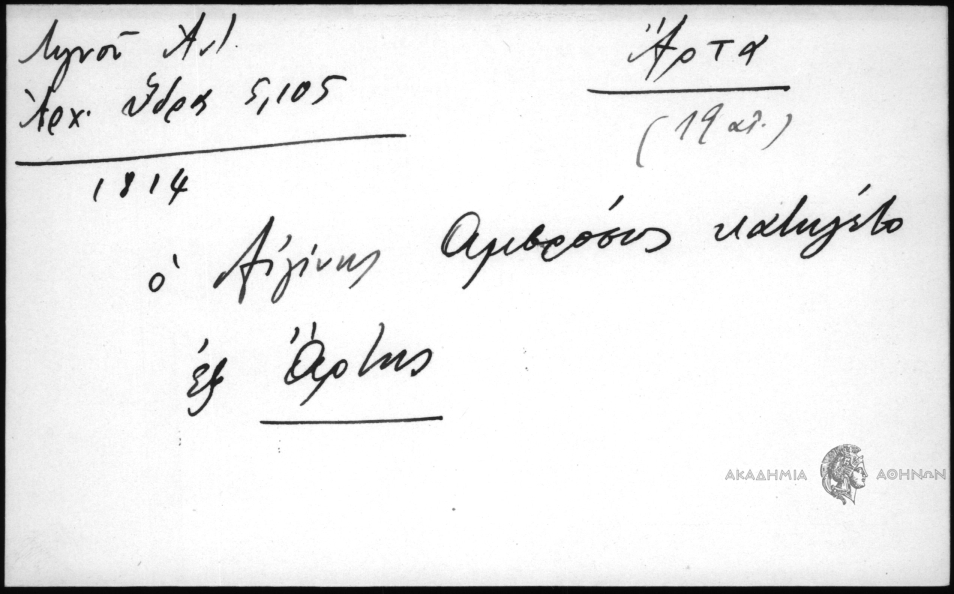 Λιγνοῦ Ἀντ.
Ἀρχ. Ὕδρα 5,105
1814
Ἄρτα
(19 αἰ.)
ὁ Αἰγίνης Ἀμβρόσιος κατήγετο
ἐξ Ἄρτης
ΑΚΑΔΗΜΙΑ ΑΘΗΝΩΝ